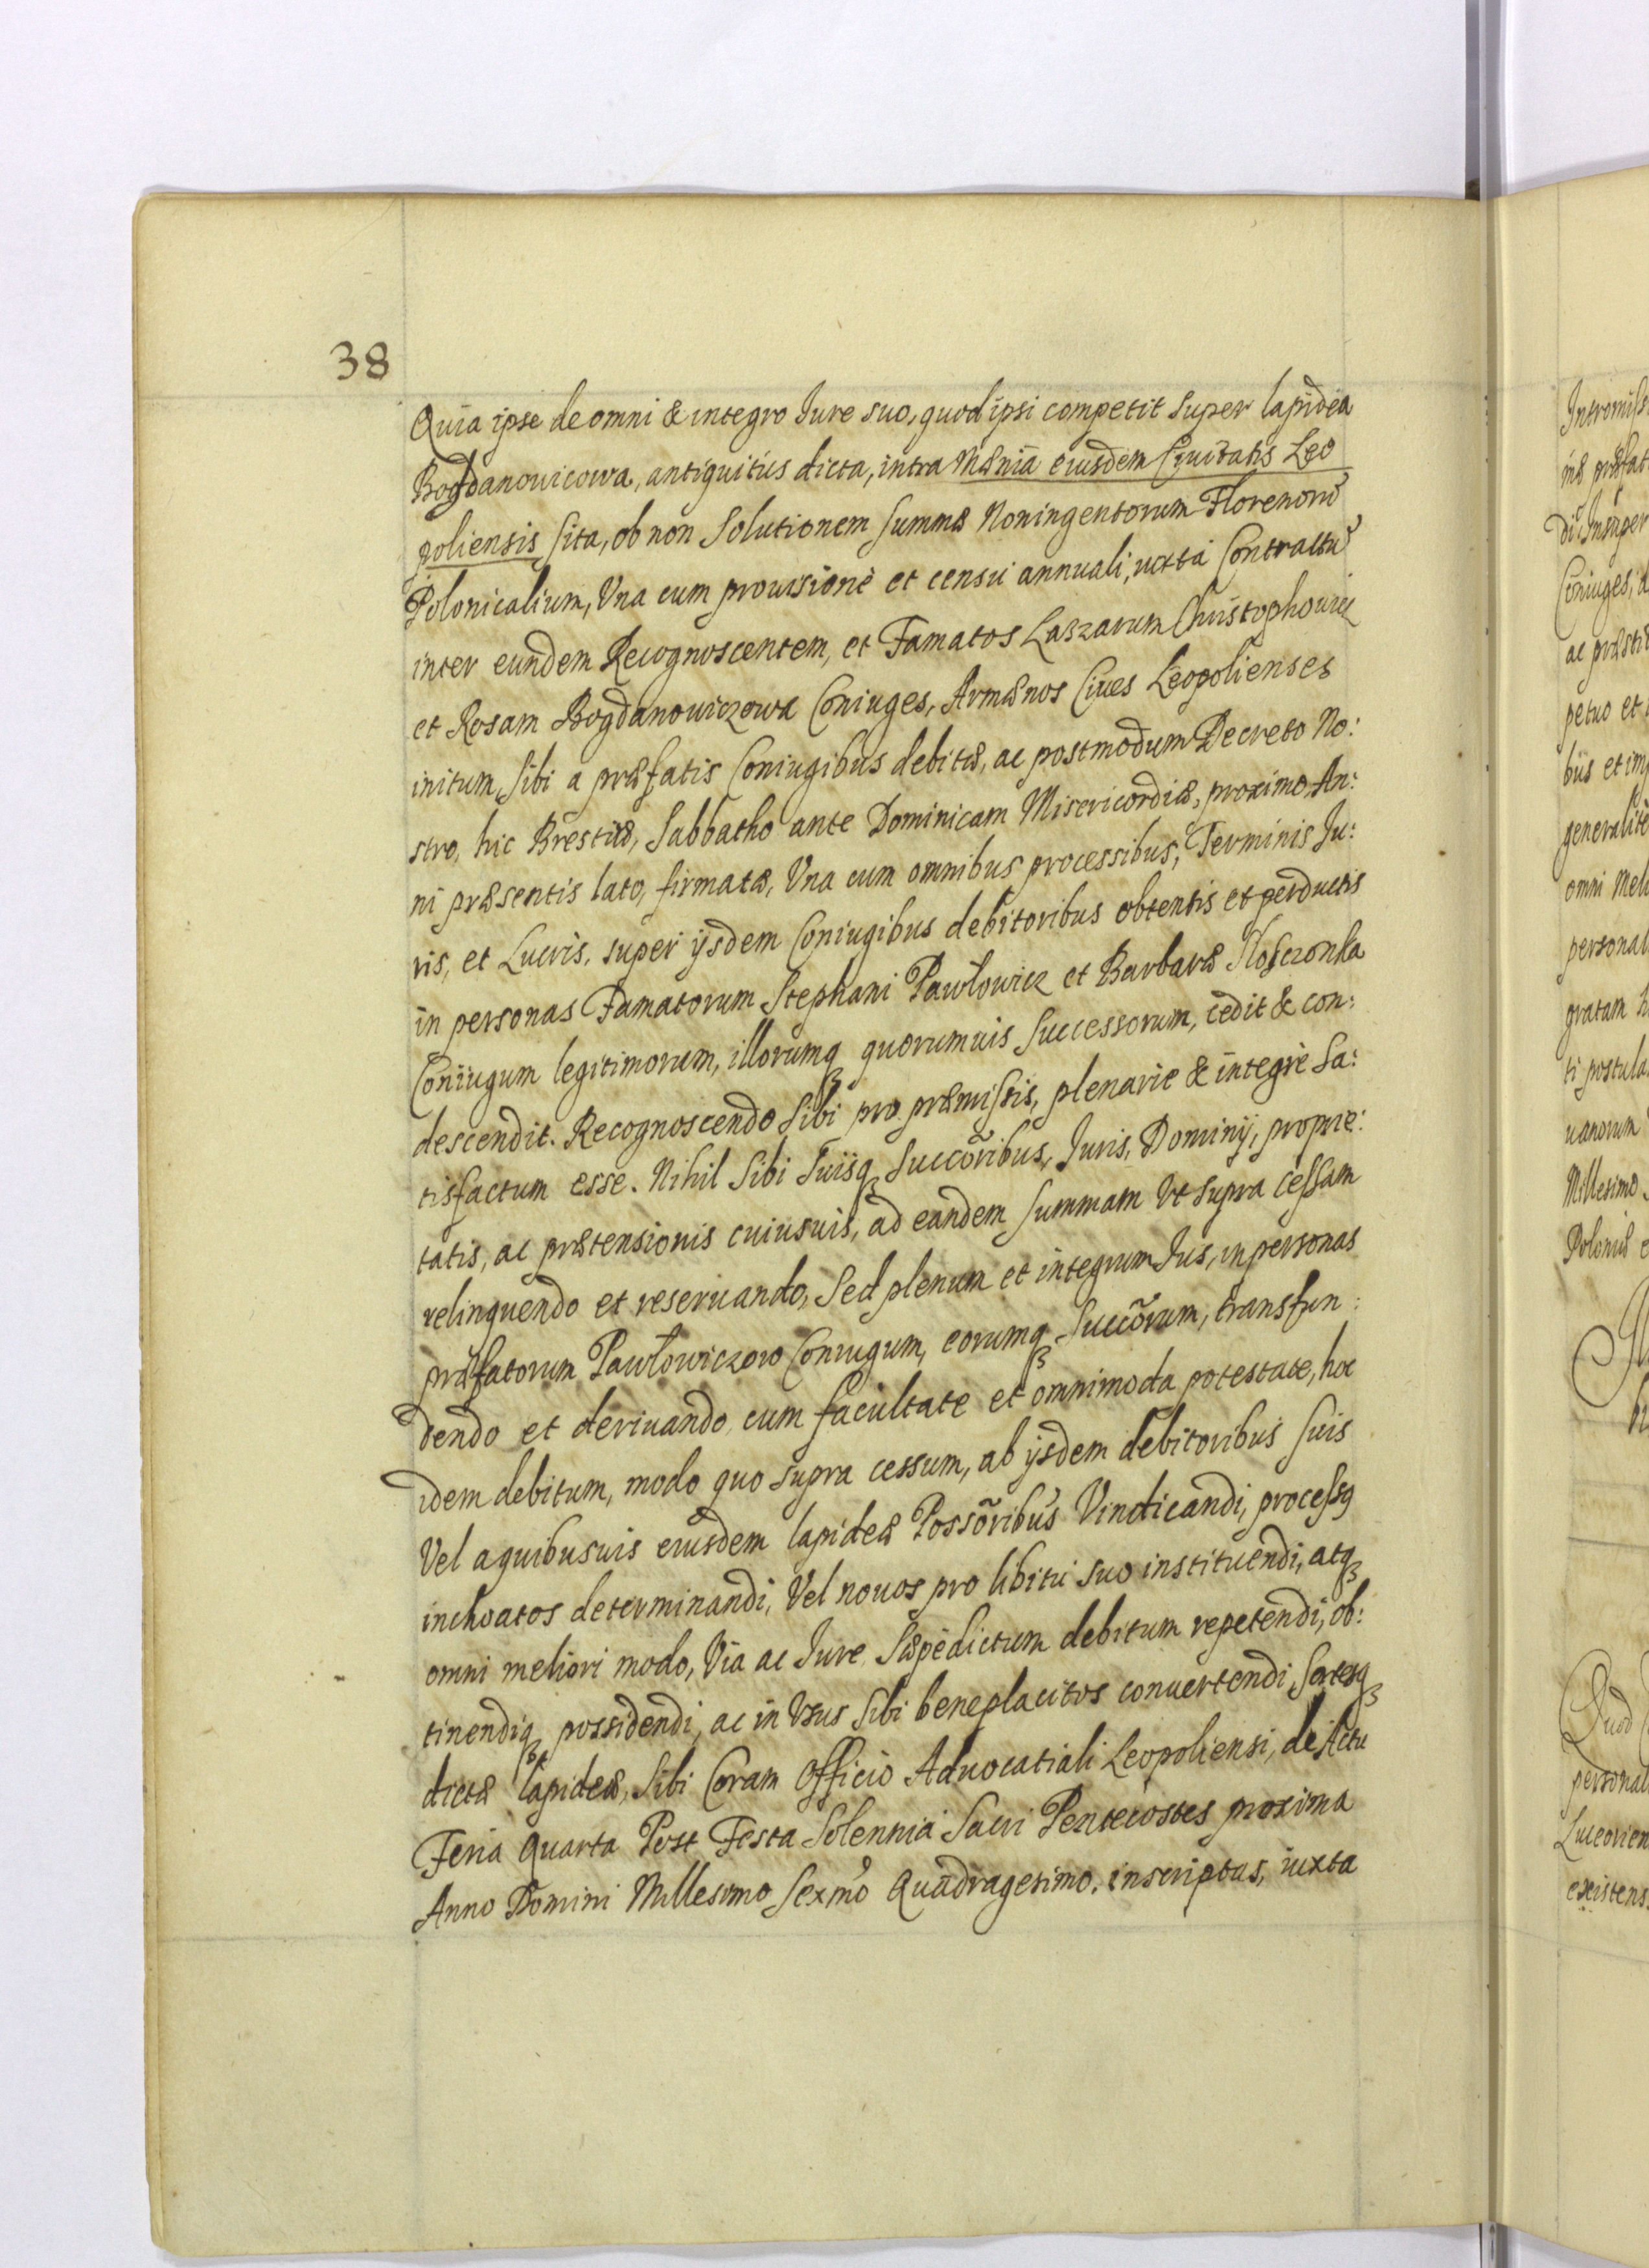 38
Quia ipse de omni & integro Iure suo, quod ipsi competit super lapidea
Bogdanowicowa, antiquitùs dicta, intra Mænia eiusdem Ciuitatis Leo
poliensis sita, ob non Solutionem summæ Noningentorum Florenorũ
Polonicalium, Vna cum prouisione et censu annuali, iuxta Contractũ
inter eundem Recognoscentem, et Famatos Laszarum Christophowicz
et Rosam Bogdanowiczowa Coniuges, Armænos Ciues Leopolienses
initum, sibi a præfatis Coniugibus debitæ, ac postmodum Decreto No:
stro, hic Brestiæ, Sabbatho ante Dominicam Misericordiæ, proximo An:
ni præsentis lato, firmatæ, Vna cum omnibus processibus, Terminis Iu:
ris, et Lucris, super ijsdem Coniugibus debitoribus obtentis et perductis
in personas Famatorum Stephani Pawłowicz et Barbaræ
Coniugum legitimorum, illorumq quorumuis Successorum, cedit & con:
descendit. Recognoscendo Sibi pro præmissis, plenarie & integrè Sa:
tisfactum esse. Nihil Sibi Suisq Succõribus, Iuris, Dominij, proprie:
tatis, ac prætensionis cuiusuis, ad eandem summam Vt supra cessam
relinquendo et reseruando, Sed plenum et integrum Ius, in personas
præfatorum Pawłowiczow Coniugum, eorumq Succõrum, transfun:
dendo et deriuando, cum facultate et omnimoda potestate, hoc
idem debitum, modo quo supra cessum, ab ijsdem debitoribus suis
Vel a quibusuis eiusdem lapideæ Possõribus Vindicandi, processq
inchoatos determinandi, Vel nouos pro libitu suo instituendi, atq
omni meliori modo, Via ac Iure Sæpedictum debitum repetendi, ob:
tinendiq possidendi, ac in Vsus Sibi beneplacitos conuertendi, Sortesq
dictæ lapideæ, Sibi Coram Officio Aduocatiali Leopoliensi, de Actu
Feria Quarta Post Festa Solennia Sacri Pentecostes proxima
Anno Domini Millesimo Sexmõ Quadragesimo, inscriptas, iuxta